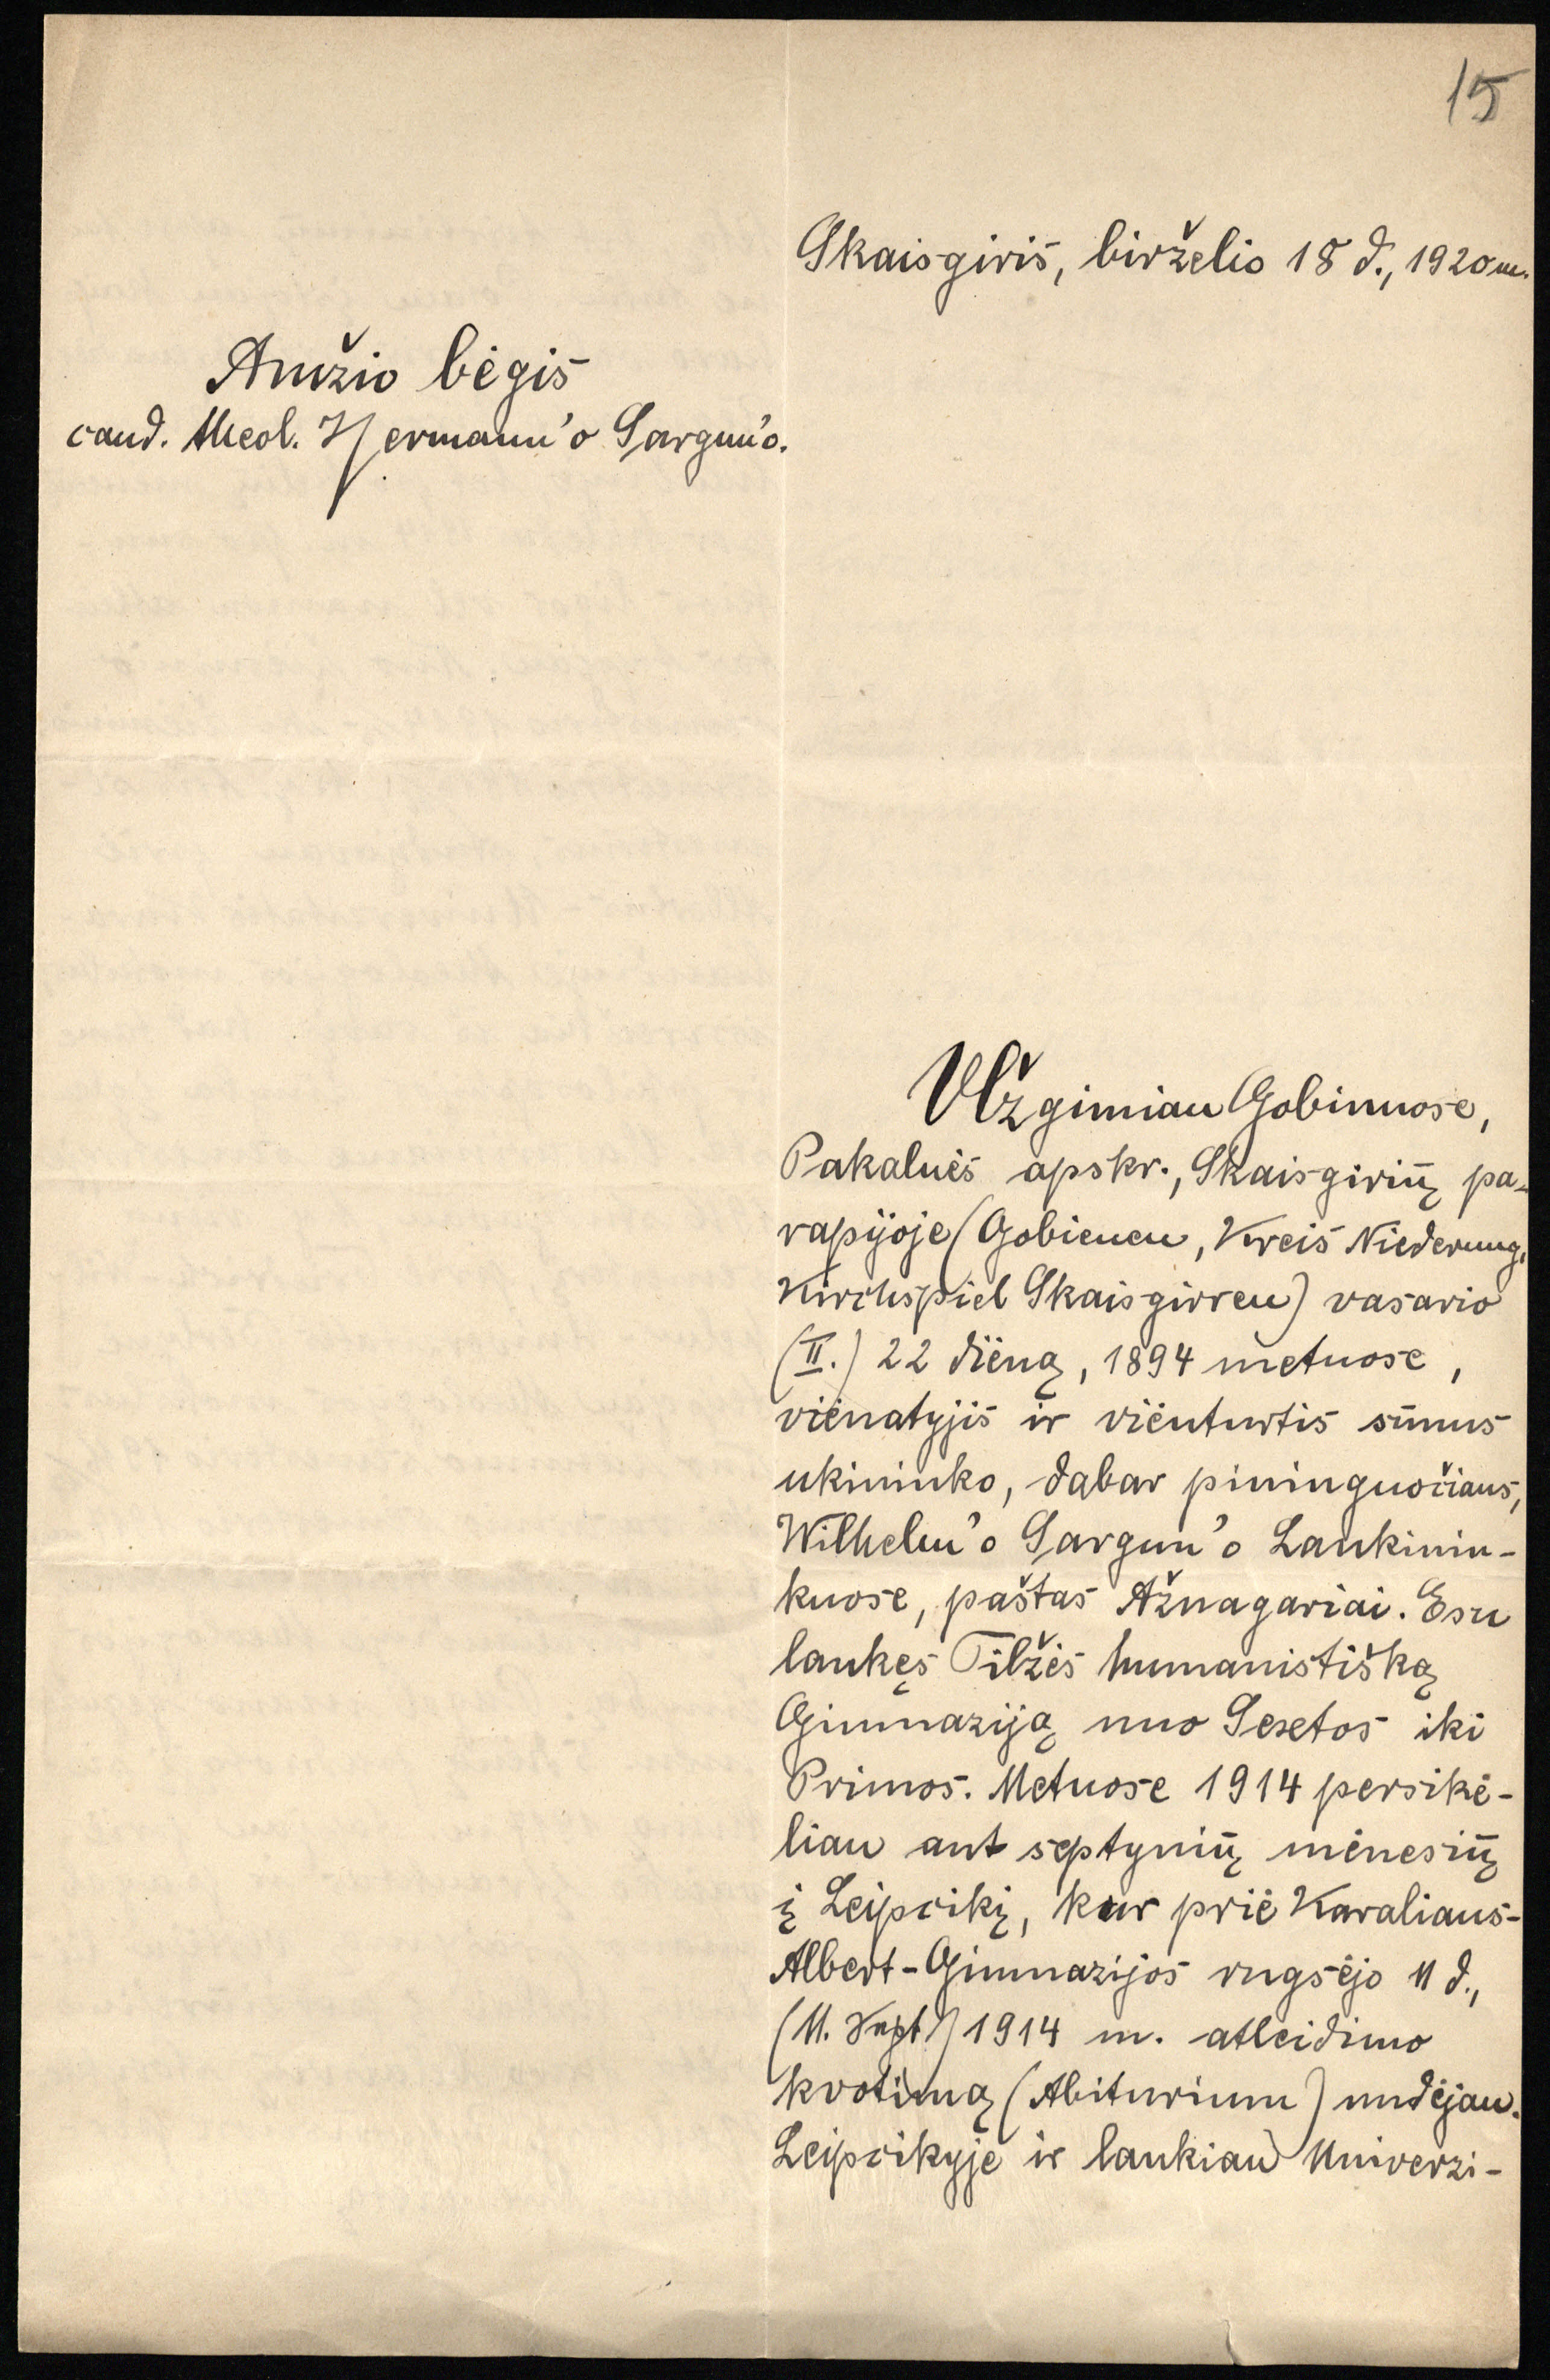 15
Skaisgiris, birželio 18 d., 1920 m.
Amžio bėgis
cand. theol. Hermann'o Sargun'o.
Užgimiau Gobinuose,
Pakalnės apskr., Skaisgirių pa-
rapijoje (Gobienen, Kreis Niederung,
Kirchspiel Skaisgirren) vasario
(II.) 22 dieną, 1894 metuose,
vienatyjis ir vienturtis sūnus
ukininko, dabar pininguočiaus,
Wilhelm'o Sargun'o Laukinin-
kuose, paštas Ažnagariai. Esu
lankęs Tilžės humanistišką
Gimnaziją nuo Sextos iki
Primos. Metuose 1914 persikė-
liau ant septynių mėnesių
į Leipcikį, kur prie Karaliaus-
Albert-Gimnazijos rugsėjo 11 d.,
(11. Sept.) 1914 m. atleidimo
kvotimą (Abiturium) nudėjau.
Leipcikyje ir lankiau Univerzi-